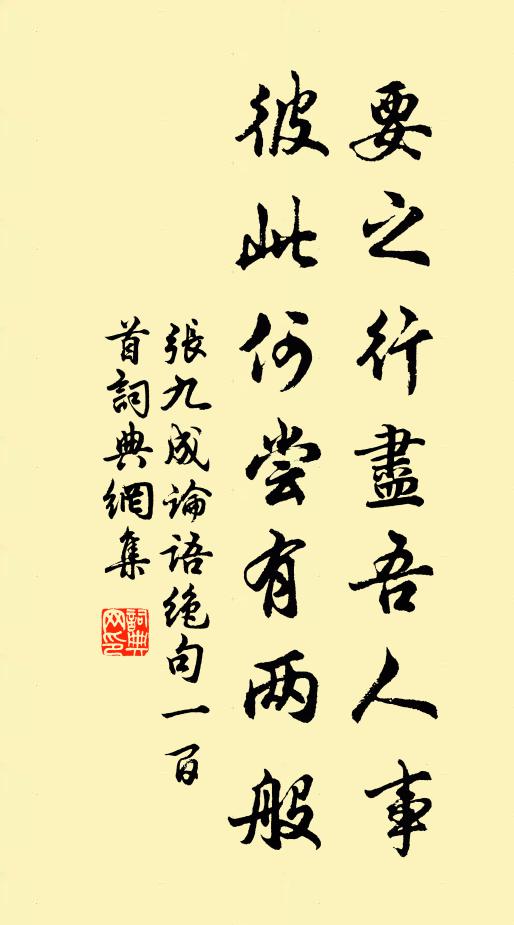 要之行盡吾人事
彼此何尝有两般
張九成論語絶句一百
首詞典網集
詞典
网印